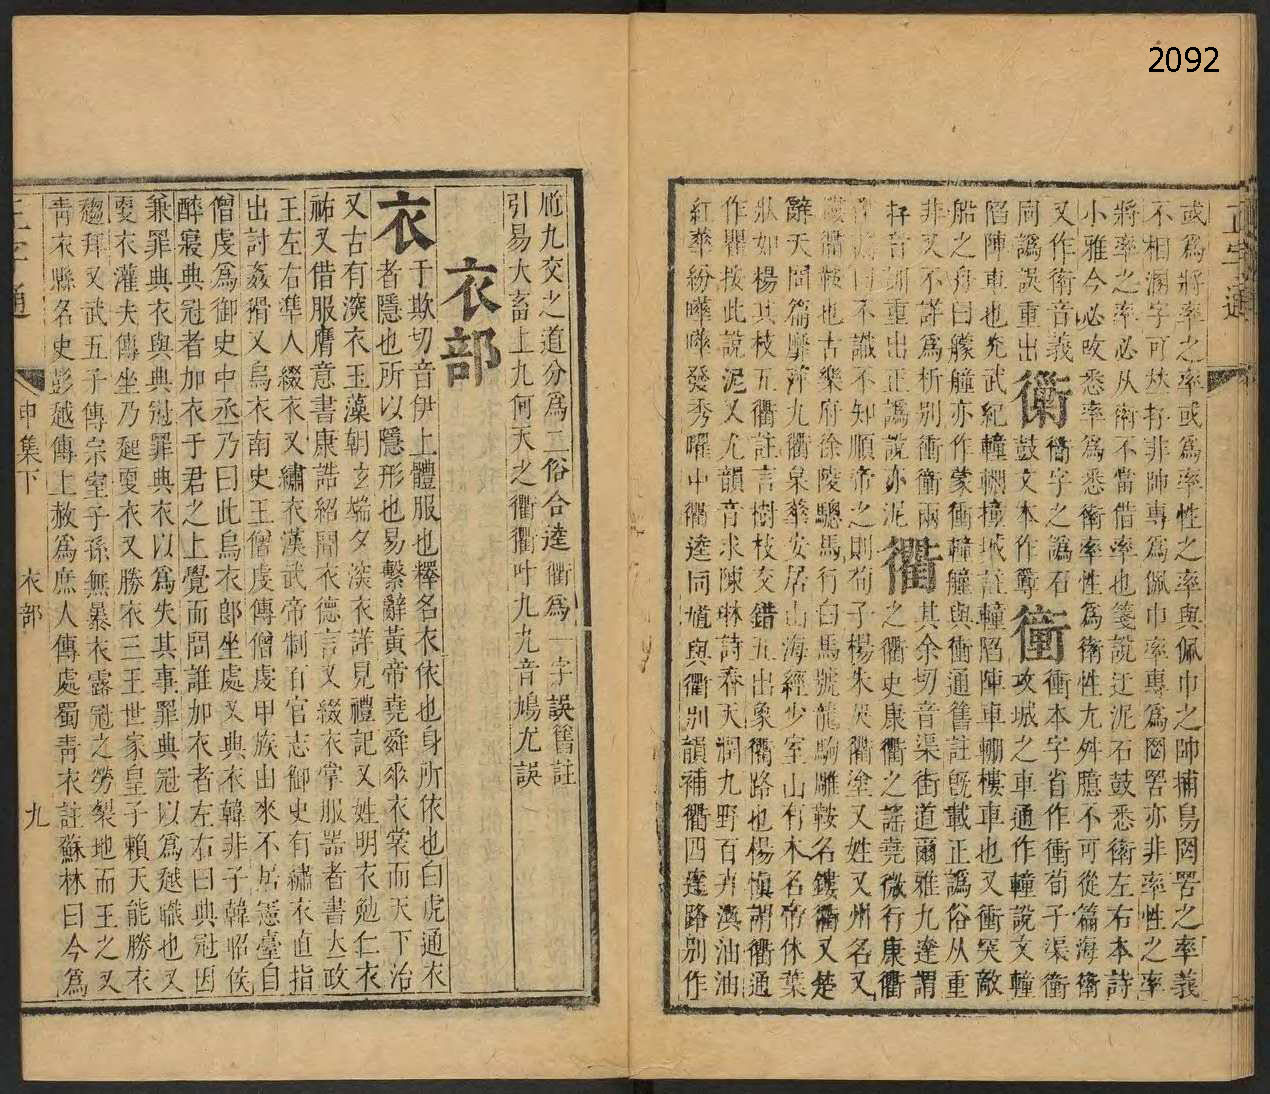 2092
正字通
或爲將率之率或爲率性之率與佩巾之帥捕鳥罔罟之率義
不相溷字可𠀤存非帥專爲佩巾率專爲罔罟亦非率性之率
將率之率必从衛不當借率也箋說迂泥石鼓悉衛左右本詩
小雅今必改悉率爲悉衛率性爲衛性尢舛臆不可從篇海衛
又作衛音義
同譌誤重出 衝字之譌石
鼓文本作 衝 衝本字省作衝荀子渠衝
攻城之車通作䡴說文䡴
陷陣車也光武紀䡴輣橦城註䡴陷陣車輣樓車也又衝突敵
船之舟曰艨艟亦作蒙衝䡴艟與衝通舊註旣載正譌俗从重
非又不詳爲析別衝衝兩
存音訓重出正譌說亦泥 衢 其余切音渠街道爾雅九達謂
之衢史康衢之謠堯微行康衢
不識不知順帝之則荀子楊朱哭衢塗又姓又州名又
鞍也古樂府徐陵驄馬行白馬號龍駒雕鞍名鏤衢又楚
辭天問篇靡蓱九衢枲華安居山海經少室山有木名帝休葉
狀如楊其枝五衢註言樹枝交錯五出象衢路也楊愼謂衢通
作瞿按此說泥又尤韻音求陳琳詩春天潤九野百卉漢油油
紅華紛曄曄發秀曜中衢逵同馗與衢別韻補衢四達路別作
馗九交之道分爲二俗合逵衢爲一字誤舊註
引易大畜上九何天之衢衢叶九九音鳩尤誤
衣部
衣 于欺切音伊上體服也釋名衣依也身所依也白虎通衣
者隱也所以隱形也易繫辭黃帝堯舜垂衣裳而天下治
又古有深衣玉藻朝玄端夕深衣詳見禮記又姓明衣勉仁衣
祐又借服膺意書康誥紹聞衣德言又綴衣掌服器者書大政
王左右準人綴衣又繡衣漢武帝制百官志御史有繡衣直指
出討姦猾又烏衣南史王僧虔傳僧虔甲族由來不居憲臺自
僧虔爲御史中丞乃曰此烏衣郎坐處又典衣韓非子韓昭侯
醉寢典冠者加衣于君之上覺而問誰加衣者左右曰典冠因
兼罪典衣與典冠罪典衣以爲失其事罪典冠以爲越職也又
更衣灌夫傳坐乃起更衣又勝衣三王世家皇子賴天能勝衣
趨拜又武五子傳宗室子孫無暴衣露冠之勞裂地而王之又
靑衣縣名史彭越傳上赦爲庶人傳處蜀靑衣註蘇林曰今爲
正字通 申集下 衣部 九